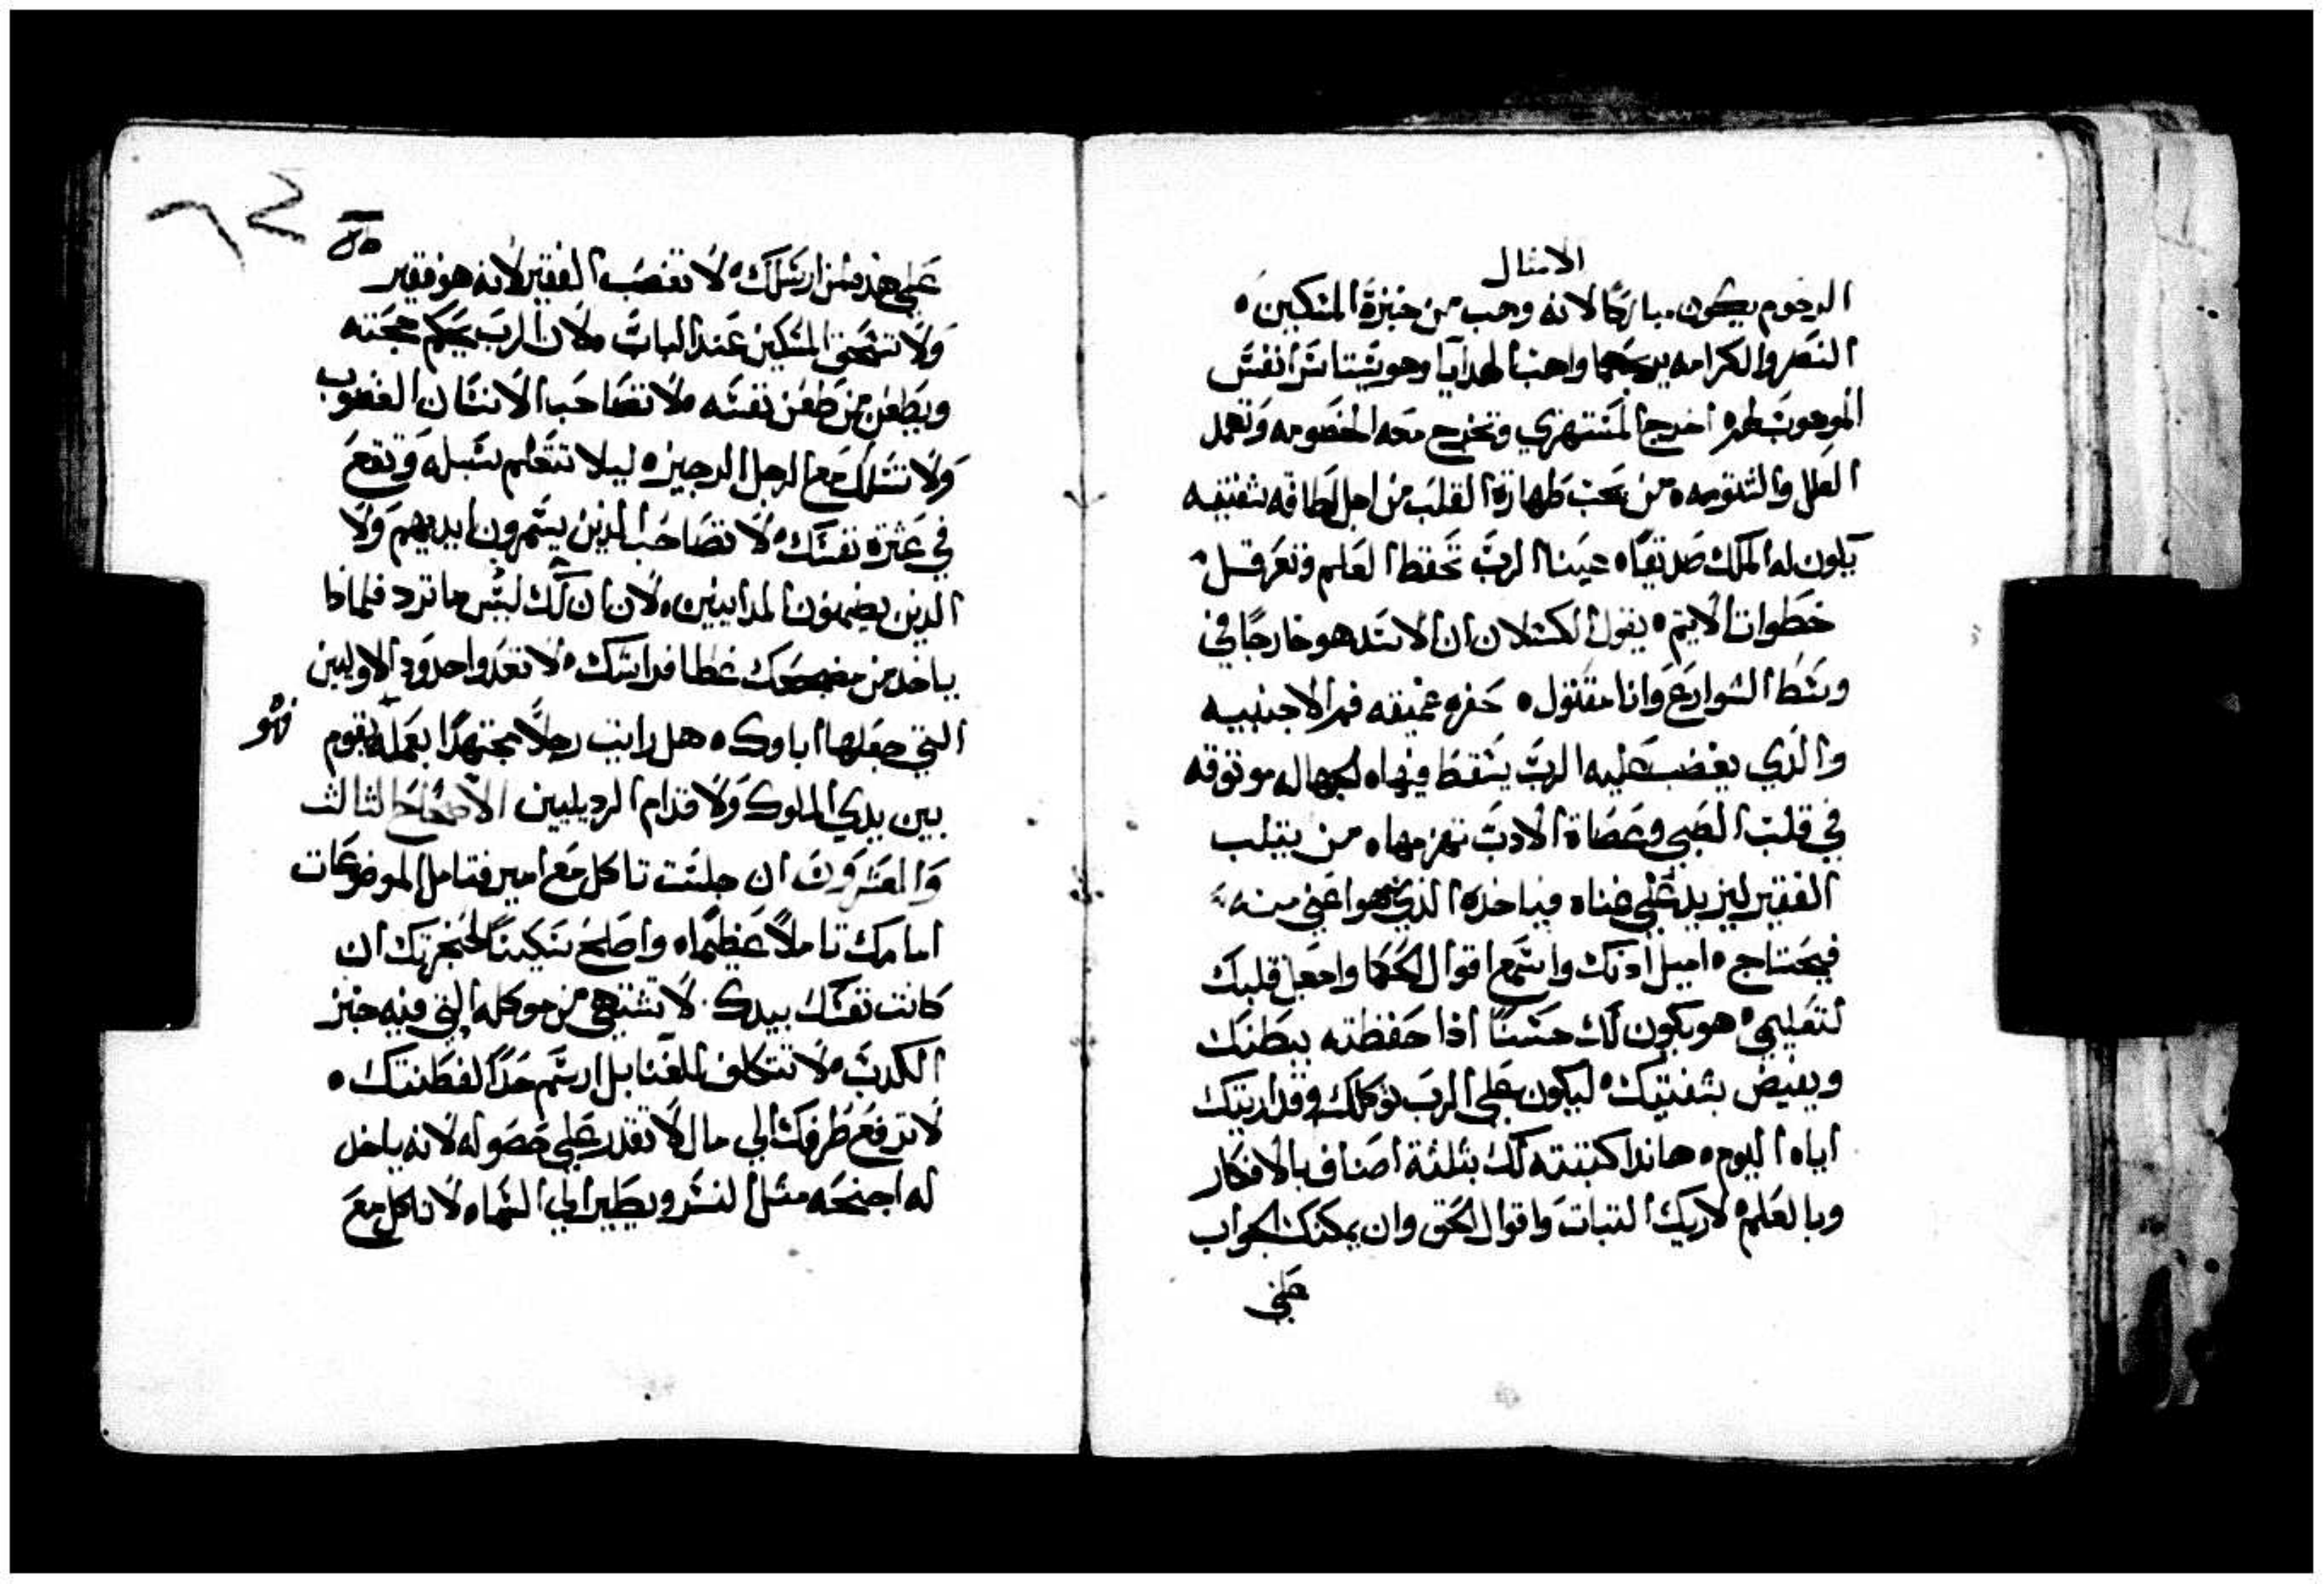 الامثال
الرحوم يكون مباركا لانه وهب من خبزة المسكين ه
النصر والكرامه يربحهما واهب الهدايا وهو يستاسر انفس
الموهوب لهم ه اخرج المستهزي وتخرج معه الخصومه وتهمد
العلل والشتومه ه من يحب طهارة القلب من اجل لطافه شفتيه
يكون له الملك صديقا ه عينا الرب تحفظ العلم وتعرقل
خطوات الاثيم ه يقول الكسلان ان الاسد هو خارجا في
وسط الشوارع وانا مقتول ه حفره عميقه فم الاجنبيه
والذي يغضب عليه الرب يسقط فيها ه الجهاله موثوقه
في قلب الصبي وعصاة الادب تهزمها ه من يثلب
الفقير ليزيد علي غناه فياخذه الذي هو اغني منه
فيحتاج ه اميل ادنك واسمع اقوال الحكما واجعل قلبك
لتعليمي ه هو يكون لك حسنا اذا حفظته ببطنك
ويفيض بشفتيك ه ليكون علي الرب توكلك وقد اريتك
اياه اليوم ه هاندا كتبته لك بثلثة اصناف بالافكار
وبالعلم ه لاريك الثبات واقوال الحق وان يمكنك الجواب
علي
٦٢
علي هذه لمن ارسلك ه لا تغصب الفقير لانه هو فقير
ولا تسحق المسكين عند الباب ه لان الرب يحكم حجته
ويطعن من طعن نفسه ه لا تصاحب الانسان الغضوب
ولا تسلك مع الرجل الرجيز ه ليلا تتعلم سبله وتقع
في عثرة نفسك ه لا تصاحب الذين يسمرون ايديهم ولا
الذين يضمنون المدايينين ه لان ان لك ليس ما ترد فلماذا
ياخد من مضجعك غطا فراشك ه لا تعدوا حدود الاولين
التي جعلها اباوك ه هل رايت رجلا مجتهدا بعمله يقوم
فهو
بين يدي الملوك ولا قدام الرديليين الاصحاح الثالث
والعشرون ان جلست تاكل مع امير فتامل الموضوعات
امامك تاملا عظيما ه واصلح سكينا لحنجرتك ان
كانت نفسك بيدك . لا تشتهي من موكله التي فيه خبز
الكدب ه لا تتكلف للغنا بل ارسم حدا لفطنتك ه
لا ترفع طرفك الي مال لا تقدر علي حصوله لانه ياخد
له اجنحه مثل النسر ويطير الي السما ه لا تاكل مع